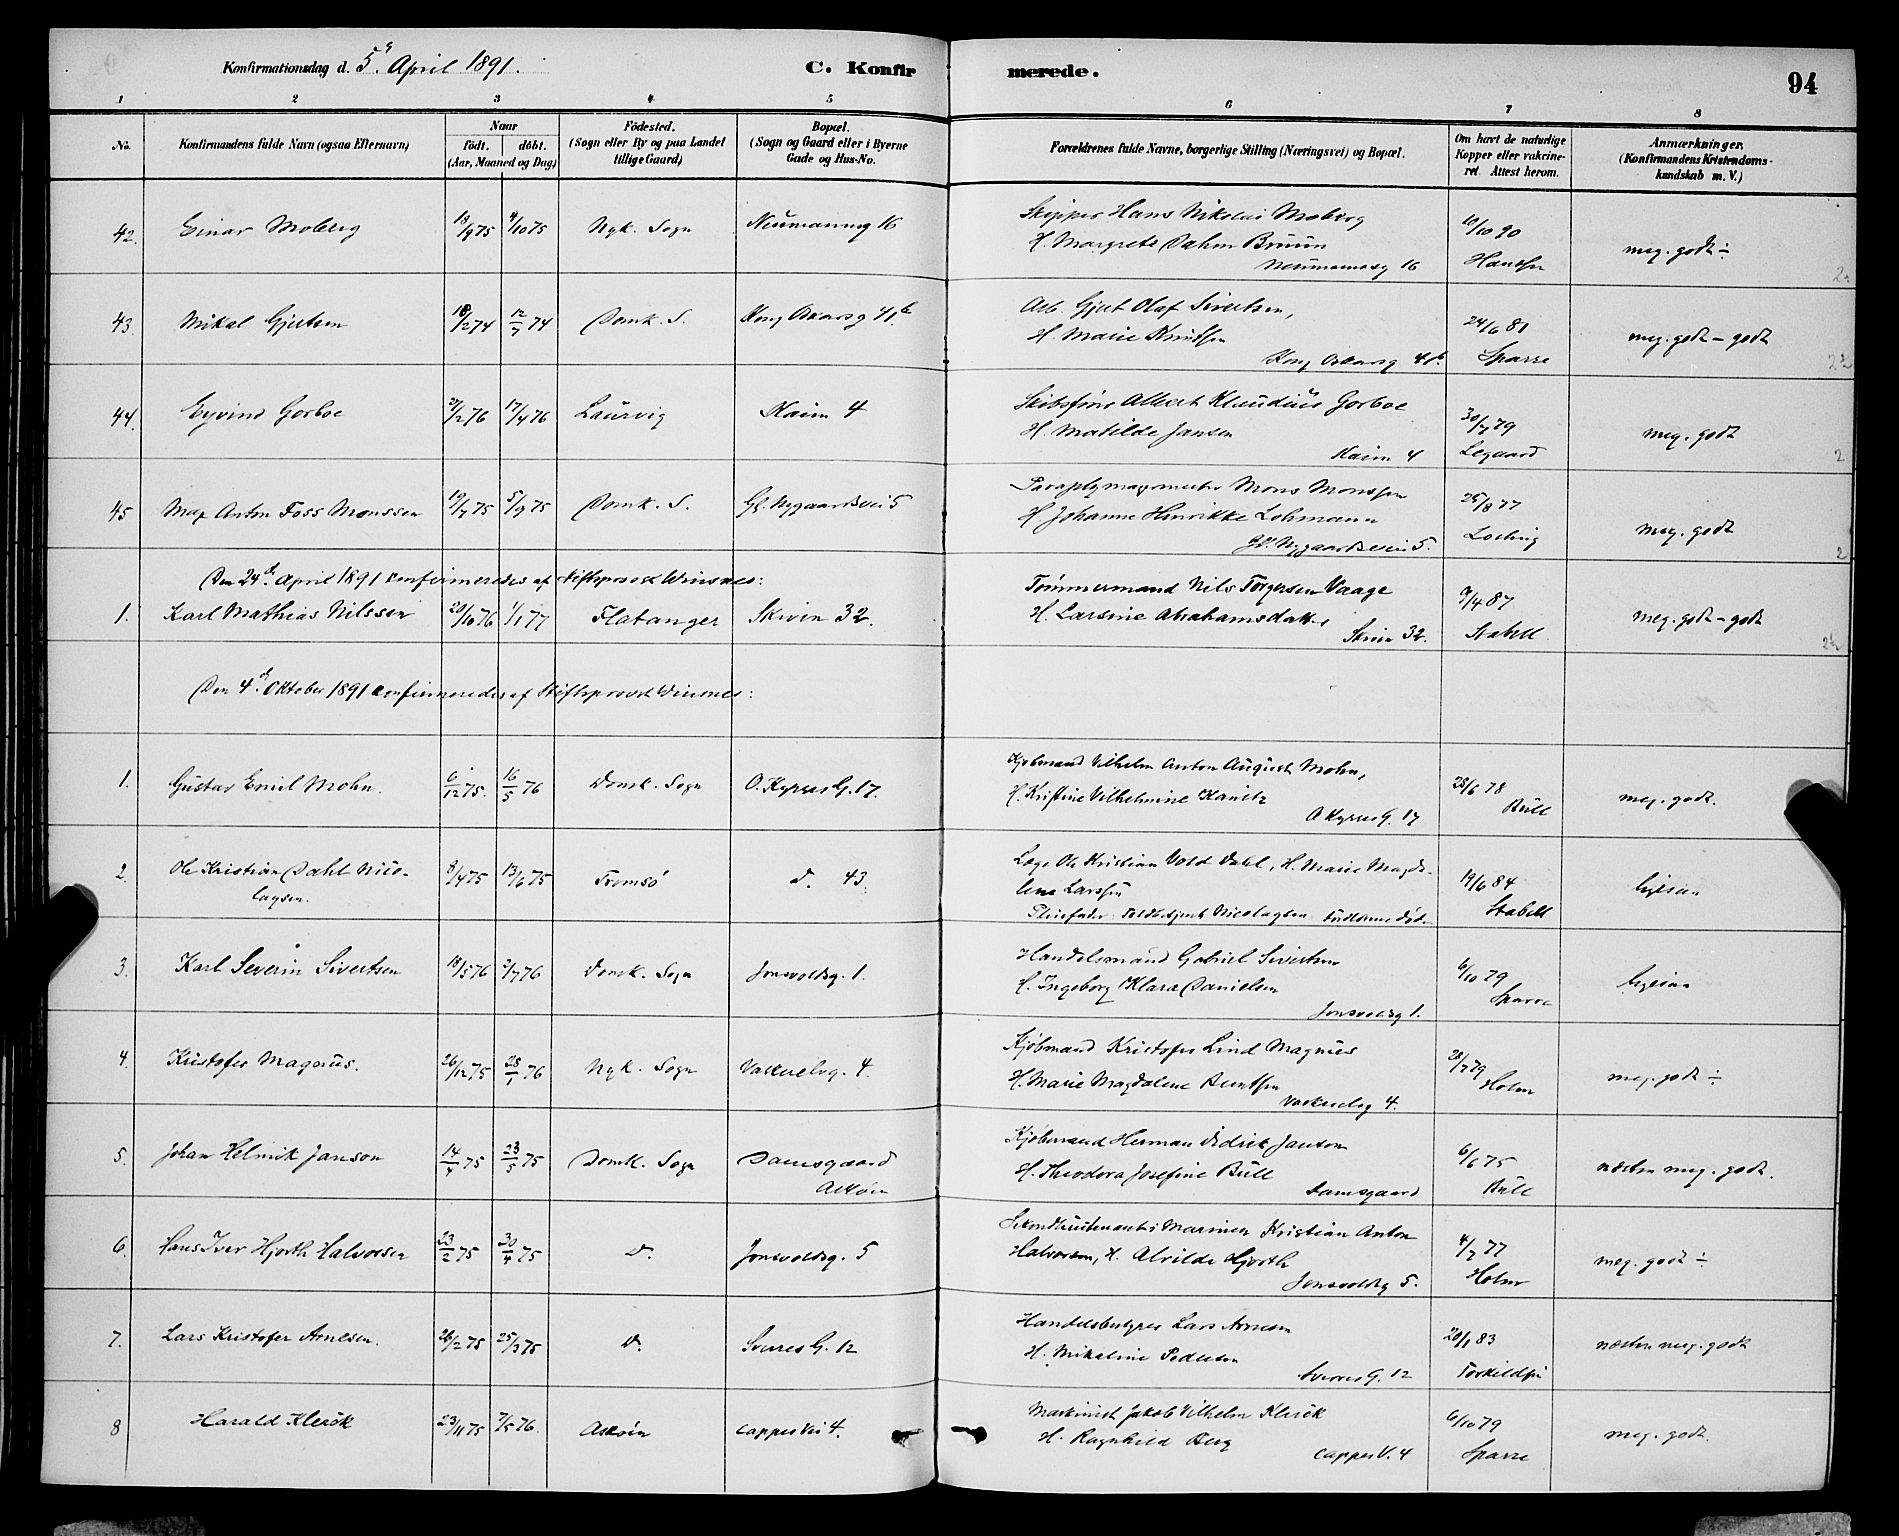 Konfirmationsdag d. 5te April 1891.
C. Konfirmerede.
94
1 2 3 4 5 6 7 8
No.
Konfirmandens fulde Navn (ogsaa Efternavn)
Naar
födt. döbt.
(Aar, Maaned og Dag)
Födested.
(Sogn eller By og paa Landet
tillige Gaard)
Bopæl.
(Sogn og Gaard eller i Byerne
Gade og Hus-No.
Forældrenes fulde Navne, borgerlige Stilling (Næringsvei) og Bopæl.
Om havt de naturlige
Kopper eller vakcine-
ret. Attest herom.
Anmærkninger.
(Konfirmandens Kristendoms-
kundskab m. V.)
42. Einar Moberg 18/9 75 4/10 75 Nyk. Sogn Neumannsg 16
Skipper Hans Nikolai Moberg
H. Margrete Dahm Bruun
Neumannsg 16
10/10 90
meg. godt ÷
43. Mikal Gjertsen 18/2 74 12/7 74 Domk. S. Kong Oscarsg 41b
Arb. Gjert Olaf Sivertsen,
H. Marie Knutsen
Kong Oscarsg 41b.
24/6 81
Sparre
meg. godt – godt
44. Eyvind Gorboe 2/2 76 17/4 76 Laurvig Kaien 4
Skibsfører Albert Klaudius Gorboe
H. Matilde Jansen
Kaien 4
30/7 79
Legaard
meg. godt
2
45 Max Anton Foss Monssen 19/7 75 5/9 75 Domk. S. Gl. Nygaardsvei 5
Paraplymagermester Mons Monssen
H Johanne Henrikke Lohmann
Gl. Nygaardsvei 5.
25/8 77
meg. godt
2
Den 24de April 1891 konfirmeredes af Stiftsprovst Winsnes:
1. Karl Mathias Nilssen 20/10 76 1/1 77 Flatanger Skiven 32.
Tømmermand Nils Torgersen Vaage
H. Larsine Abrahamsdatter
Skiven 32.
9/4 87
Stabell
meg. godt – godt
Den 4de Oktober 1891 konfirmeredes af Stiftsprovst Winsnes:
1. Gustav Emil Mohn. 6/12 75. 16/5 76 Domk. Sogn O. Kyrres G. 17.
Kjøbmand Vilhelm Anton August Mohn,
H. Kristine Vilhelmine Kanitz
O Kyrres G. 17
28/6 78
Bull
meg. godt.
2. Ole Kristian Dahl Nico-
laysen. 8/4 75 13/6 75 Tromsø d. 43.
Læge Ole Kristian Vold Dahl, H. Marie Magda-
lena Larssen
Pleiefader: Toldbetjent Nicolaysen Forældrene døde
19/6 84
Stabell
ligesaa
3. Karl Severin Sivertsen 18/5 76 2/7 76 Domk. Sogn Jonsvoldsg. 1.
Handelsmand Gabriel Sivertsen
H. Ingeborg Klara Danielsen
Jonsvoldsg 1.
6/10 79
Sparre
ligesaa
4. Kristofer Magnus. 26/12 75 28/1 76 Nyk. Sogn Vaskerelvg. 4.
Kjøbmand Kristofer Lind Magnus
H. Marie Magdalene Berntsen
Vaskerelvg 4.
28/7 79
Holm
meg. godt ÷
5. Johan Helmik Janson 14/4 75 23/5 75 Domk. Sogn Damsgaard
Askøen
Kjøbmand Herman Didrik Janson
H. Theodora Josefine Bull
Damsgaard
6/6 75
Bull
næsten meg. godt.
6. Hans Iver Hjorth Halvorsen 23/2 75 30/4 75 d. Jonsvoldsg. 5
Sekondlieutenant i Marinen Kristian Anton
Halvorsen, H. Alvilde Hjorth
Jonsvoldsg 5.
4/7 77
Holm
meg. godt ÷
7. Lars Kristofer Arnesen. 26/2 75 25/3 75 d. Sverres G. 12
Handelsbestyrer Lars Arnesen
H. Mikaline Pedersen
Sverres G. 12
20/1 83
Torkildsen
næsten meg. godt
8 Harald Klerck 23/11 75 7/5 76. Askøen Cappes Vei 4.
Maskinist Jakob Vilhelm Klerck
H. Ragnhild Berg
Cappes V. 4
6/10 79
Sparre
meg. godt.